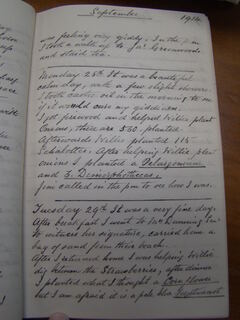 September 1914
was feeling very giddy. In the p.m
I took a walk up to Jas. Greenwoods
and staid tea.
Monday 28th It was a beautiful
calm day, with a few slight showers.
I took castor oil in the morning to see
if it would cure my giddiness.
I got firewood and helped Willie plant
Onions, there are 530. planted.
Afterwards Willie planted 115
Eschalottes. After helping Willie plant
onions I planted a Pelargonium
and 3. Dimorphothecas.
Jim called in the pm to see how I was.
Tuesday 29th It was a very fine day.
After breakfast I went to Mr Dunning sen
to witness his signature, carried home a
bag of sand from their beach.
After I returned home I was helping Willie
dig between the Strawberries, after dinner
I planted what I thought a
but I am afraid it is a pale blue